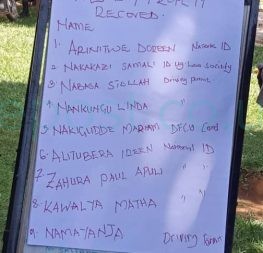 RECOVERED.
NAME
1. ARINITWE DOREEN National ID
2. NAKAKAZI SAMALI ID Ug Law Society
3 NABAGA STELLAH Driving permit
4 NANKUNGU LINDA "
5 NAKIGUDDE MARIAM DFCU Card
6 ALITUBERA IDEEN National ID
7. ZAHURA PAUL APULI " "
8. KAWALYA MATHA " "
9. NAMAYANJA Driving Permit